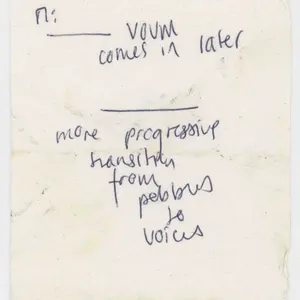 П:
VOVM
comes in later
more progressive
transition
from
pebbles
to
voices